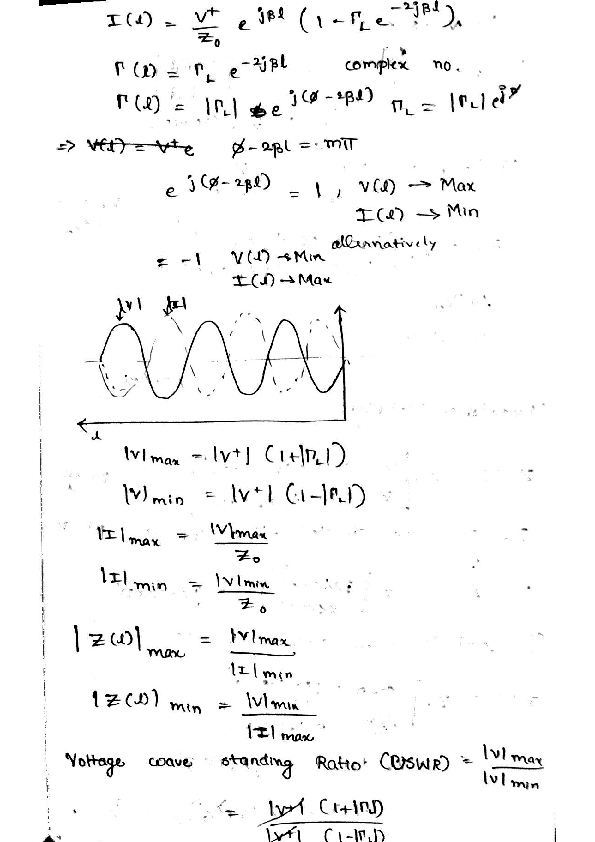 I(l) = V⁺/Z₀ e^{jβl} (1 - Γ_L e^{-2jβl}).
Γ(l) = Γ_L e^{-2jβl} complex no.
Γ(l) = |Γ_L| e^{j(φ-2βl)} Γ_L = |Γ_L| e^{jφ}
⇒ V(l) = V⁺e φ-2βl = mπ
e^{j(φ-2βl)} = 1, V(l) → Max
I(l) → Min
alternatively
= -1 V(l) → Min
I(l) → Max
|V| |I|
l
|V|max = |V⁺| (1+|Γ_L|)
|V|min = |V⁺| (1-|Γ_L|)
|I|max = |V|max / Z₀
|I|min = |V|min / Z₀
|Z(l)|max = |V|max / |I|min
|Z(l)|min = |V|min / |I|max
Voltage wave standing Ratio (VSWR) = |V|max / |V|min
= |V+| (1+|Γ_L|) / |V+| (1-|Γ_L|)